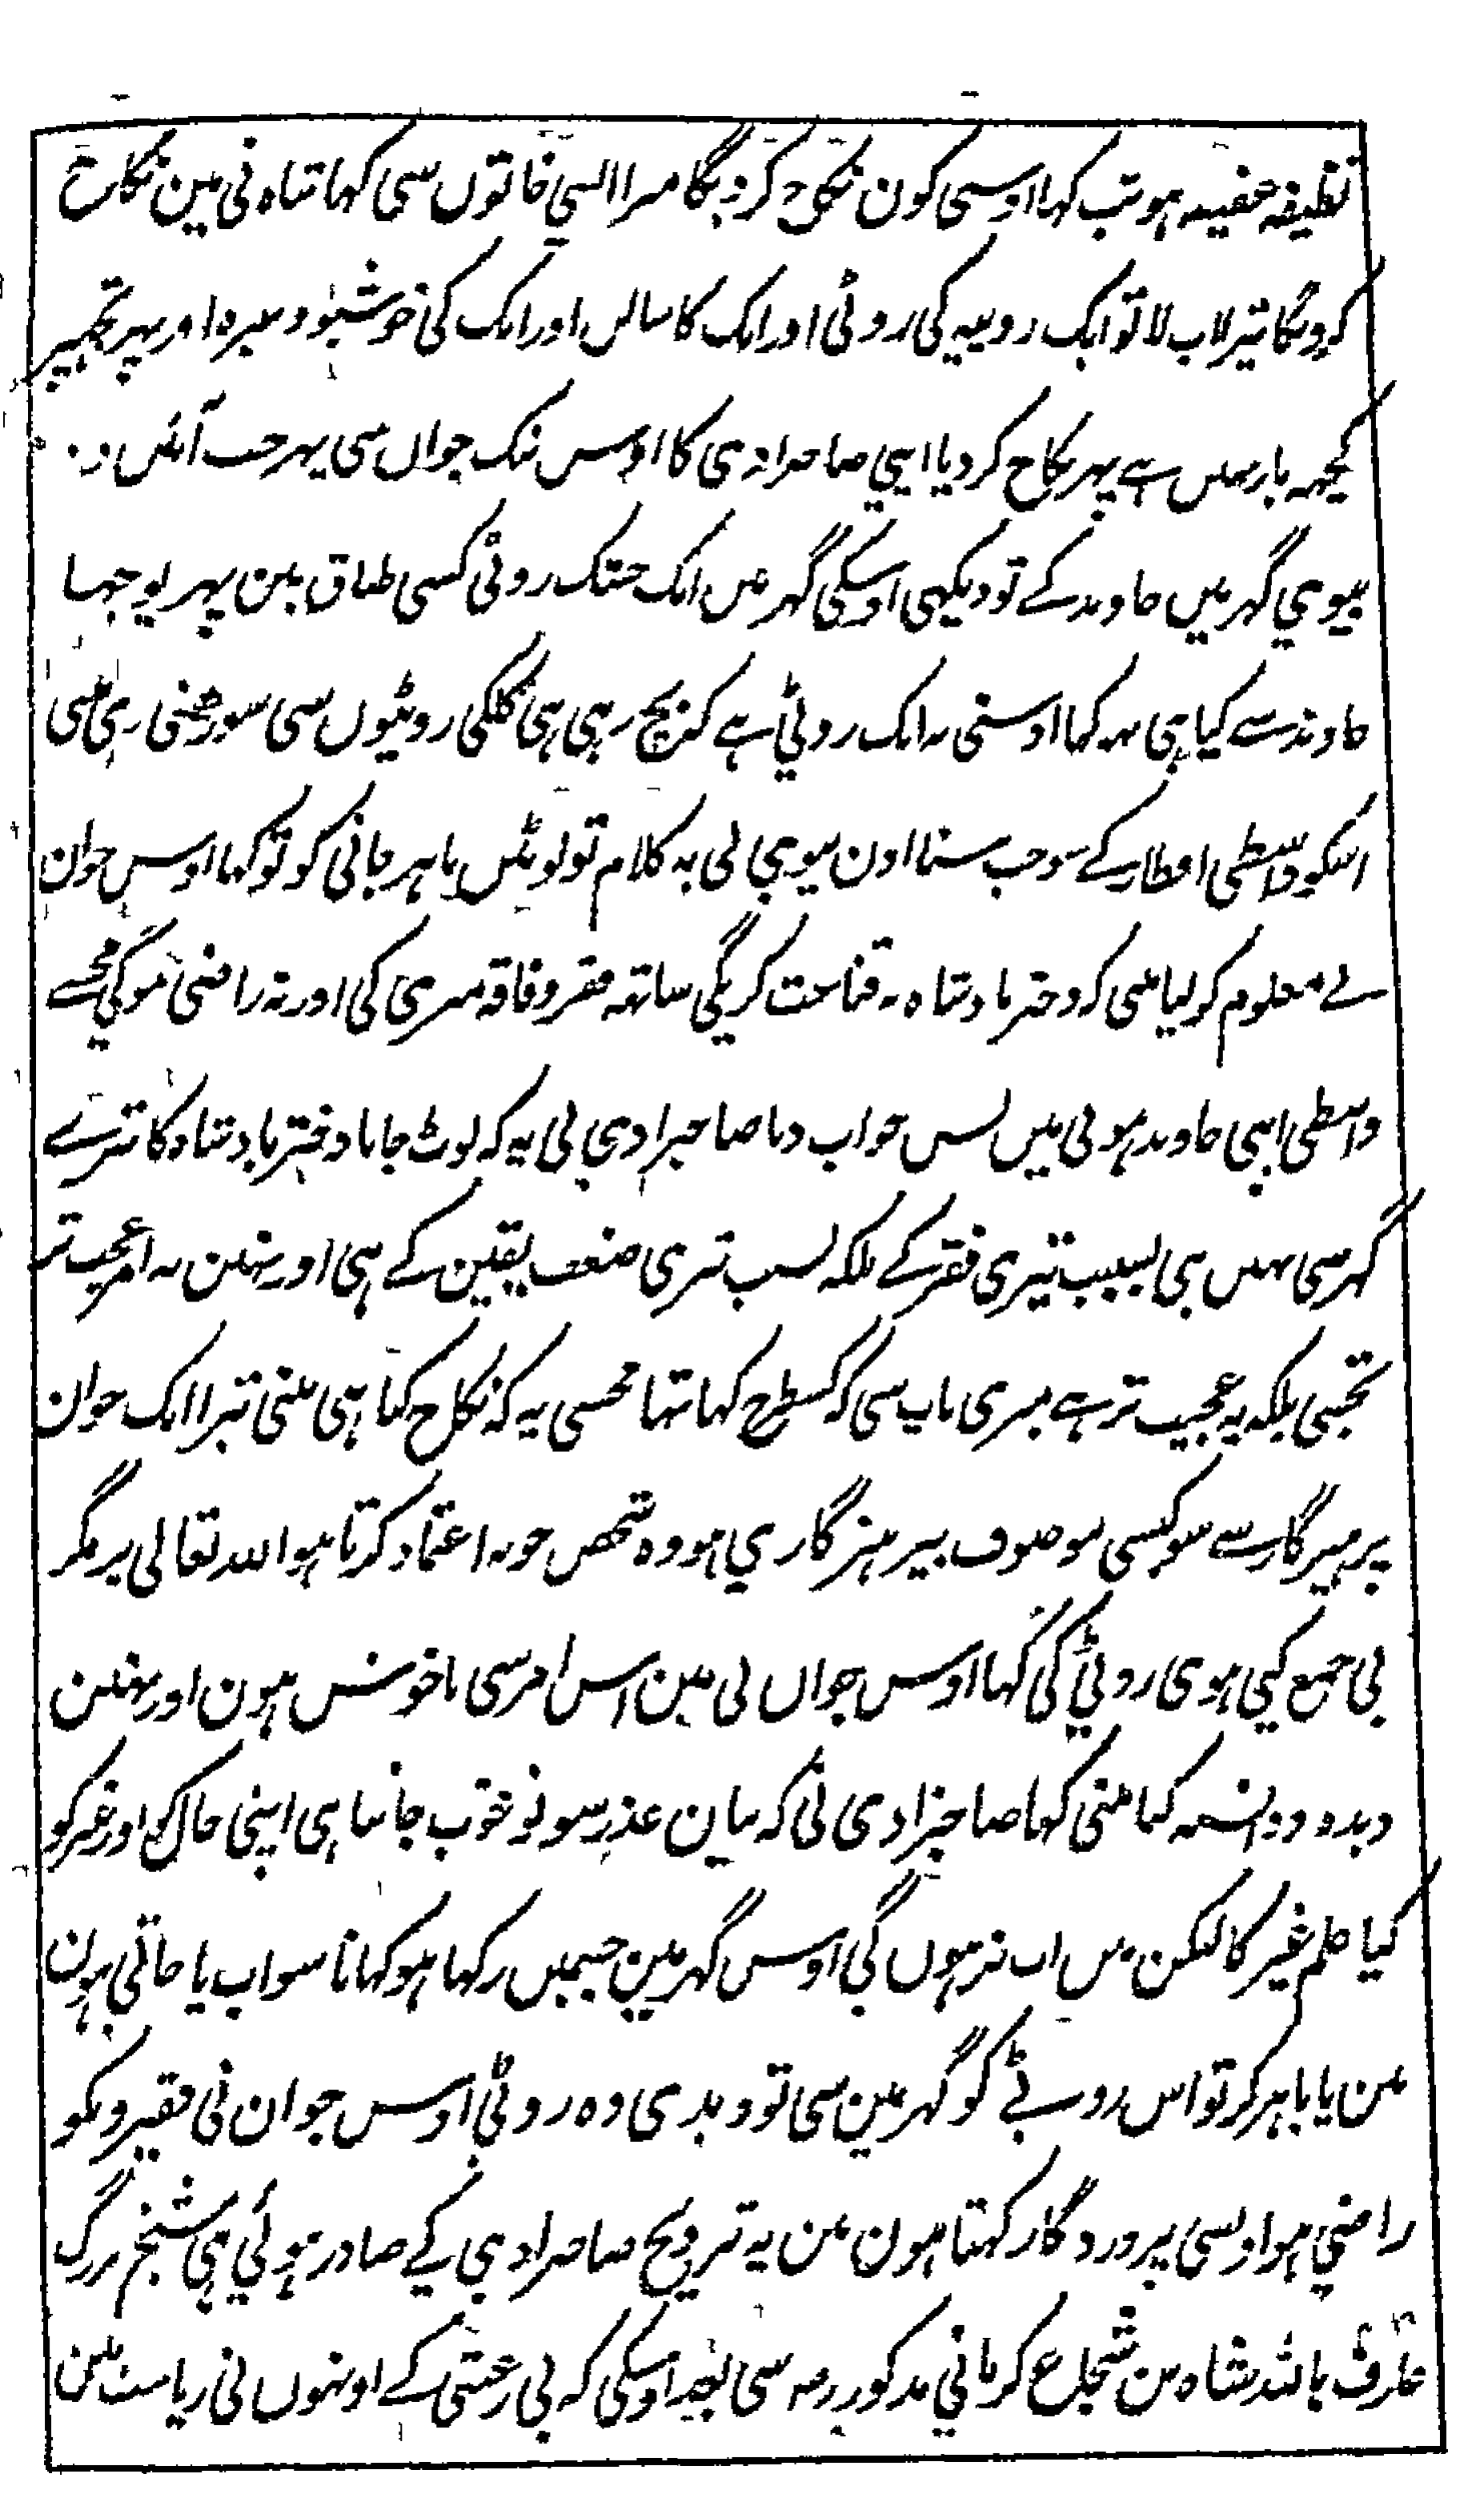 نظیفہ عفیفہ ہو تب کہا اوسی کون نکاح کر دیگا میرا ایسی خاتون سی کہا شاہ نی مین نکاح
کرونگا تیرا اب لا تو ایک روپیہ کی روٹی اور ایک کا سالن اور ایک کی خوشبو و غیرہ اور پھر تجھپر
کچھہ بار نہیں ہے پھر نکاح کر دیا اپنی صاحبزادی کا اوس نیک جوان سی پھر جب آئیں
بیوی گہر میں خاوند کے تو دیکہی اوسکی گہر میں ایک خشک روٹی کسی طاق مین پہر پوچہا
خاوند سے کیا ہی یہ کہا اوسنی یہ ایک روٹی ہے کہ بچ رہی ہی کلکی روٹیوں سی سو رکھی ہی مینی
اسکو واسطی افطار کے سو جب سنا اون بیوی نی یہ کلام تو لوٹیں باہر جانی کو تو کہا اوس جوان
نے معلوم کر لیا مینی کہ دختر بادشاہ نہ قناعت کریگی ساتہہ فقر و فاقہ میری کی اور نہ راضی ہوگی مجھسے
واسطی اپنی خاوند ہونی میں بس جواب دیا صاحبزادی نی یہ کہ لوٹ جانا دختر بادشاہ کا تیرے
گہر سی نہیں ہی بسبب تیری فقر کے بلکہ بسبب تیری ضعف یقین کے ہی اور نہین یہ امر عجیب تر
تجھسی بلکہ یہ عجیب تر ہے میری باپ سی کہ کسطرح کہا تہا مجھسی یہ کہ نکاح کیا ہی مینی تیرا ایک جوان
پرہیزگار سے سو کیسی موصوف بپرہیزگاری ہو وہ شخص جو نہ اعتماد کرتا ہو اللہ تعالی پر مگر
بی جمع کیی ہوی روٹی کی کہا اوس جوان نی مین اس امر سی ناخوش ہون اور نہین
دیدہ و دانستہ کیا مینی کہا صاحبزادی نی کہ بیان عذر سو تو خوب جانتا ہی اپنی حال کو اور غیر کو
کیا علم غیر کا لیکن میں اب نرہوں گی اوس گہر مین جسمیں رکہا ہو کہانا سو اب یا جاتی ہون
مین یا باہر کر تو اس روٹی کو گہر مین سی تو دیدی وہ روٹی اوس جوان نی فقیرونکو
راضی ہو اوسی پروردگار کہتا ہون مین یہ تزویج صاحبزادی کے صادر ہوئی ہی شیخ بزرگ
عارف باللہ شاہ بن شجاع کرمانی مذکور رحمہ سی بعد اوسکی کہ بی رغبتی کے اونہوں نی ریاست مین